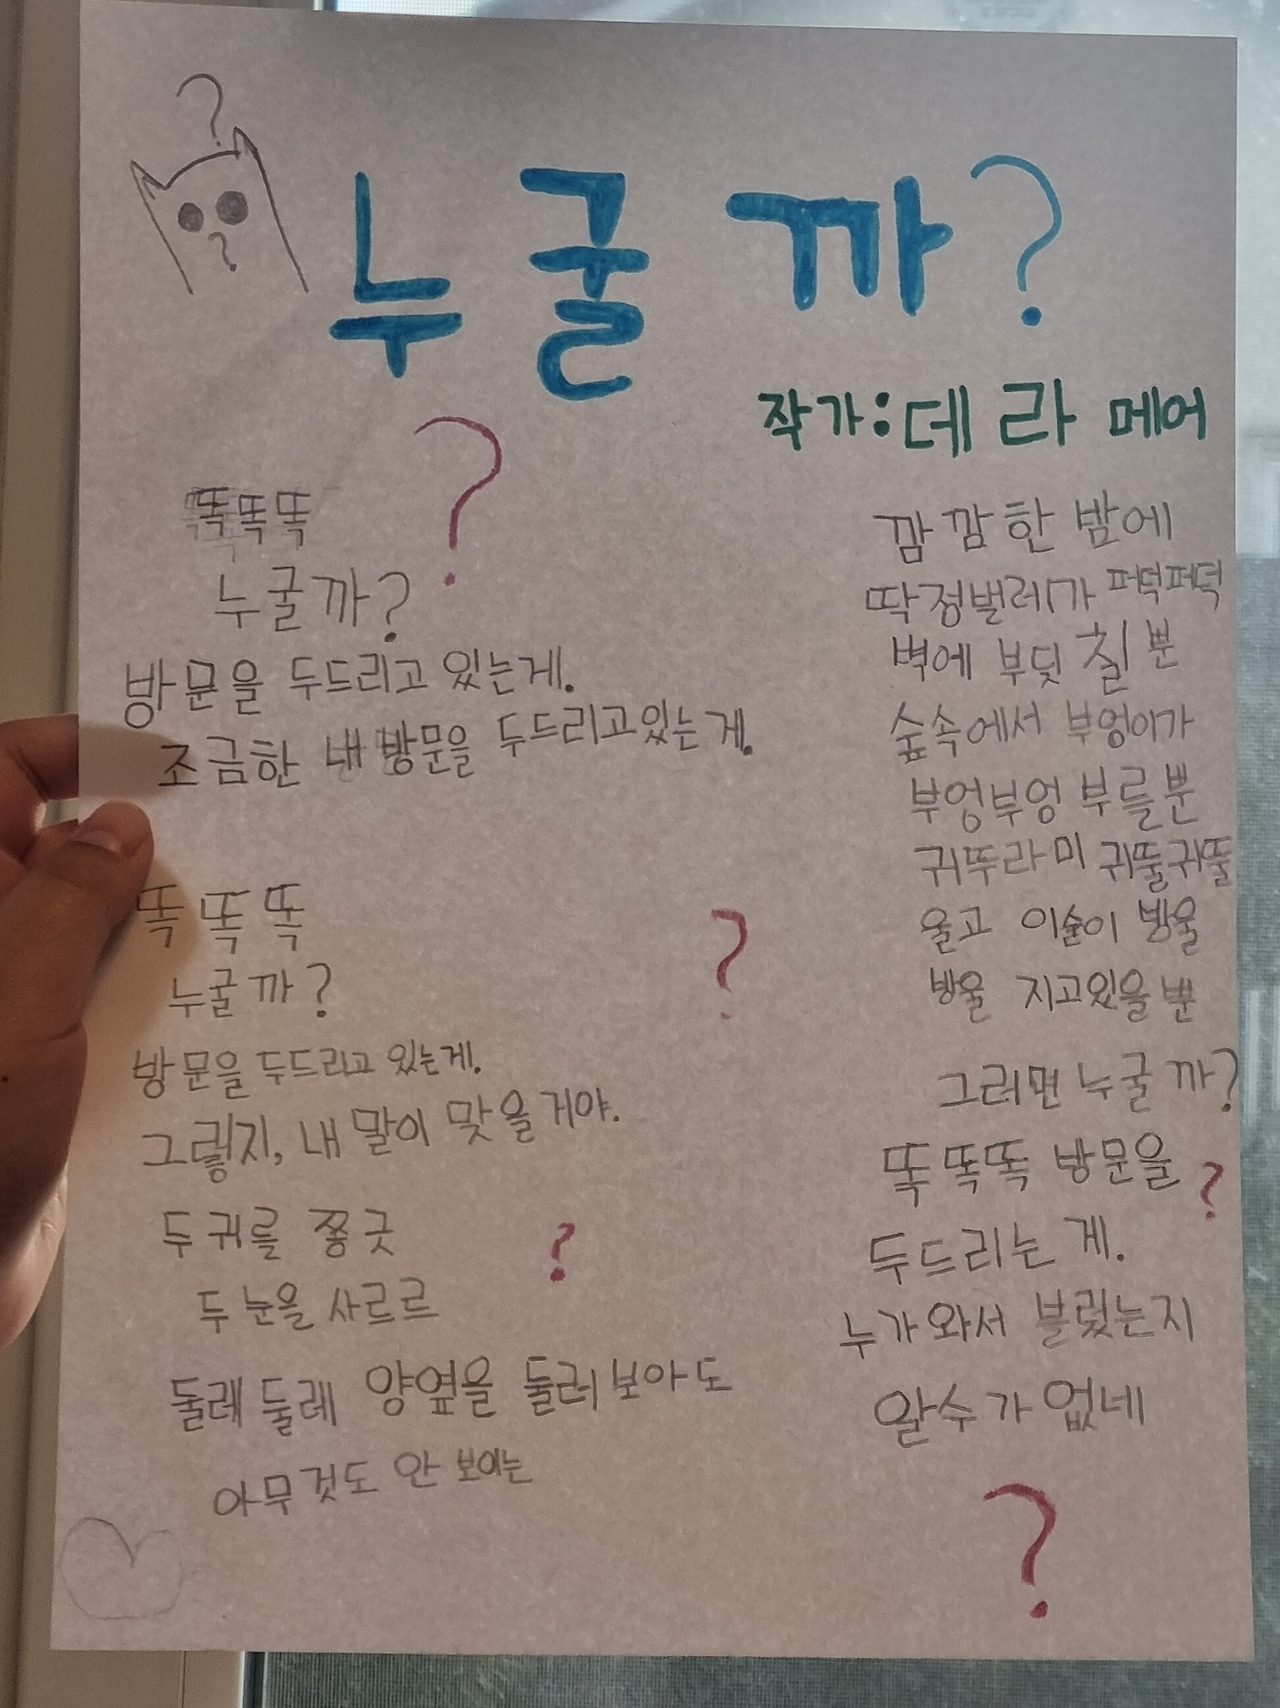 누굴까?
작가:데 라 메어
똑똑똑
누굴까?
방문을 두드리고 있는게.
조금한 내 방문을 두드리고있는게.
똑똑똑
누굴까?
방문을 두드리고 있는게.
그렇지, 내 말이 맞을거야.
두 귀를 쫑긋
두 눈을 사르르
둘레둘레 양옆을 둘러보아도
아무것도 안 보이는
깜깜한 밤에
딱정벌레가 퍼덕퍼덕
벽에 부딪칠 뿐
숲속에서 부엉이가
부엉부엉 부를뿐
귀뚜라미 귀뚤귀뚤
울고 이슬이 방울
방울 지고있을뿐
그러면 누굴까?
똑똑똑 방문을
두드리는 게.
누가와서 불렀는지
알수가 없네